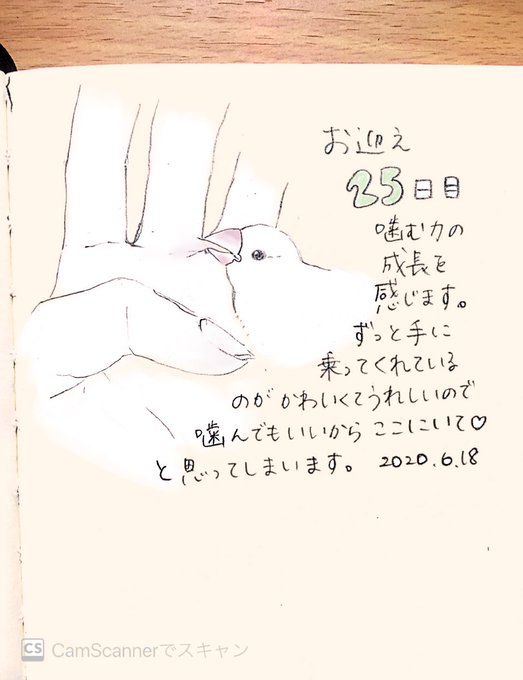 お迎え
25日目
噛む力の
成長を
感じます。
ずっと手に
乗ってくれている
のが かわいくてうれしいので
噛んでもいいから ここにいて♡
と思ってしまいます。 2020.6.18
CS CamScannerでスキャン